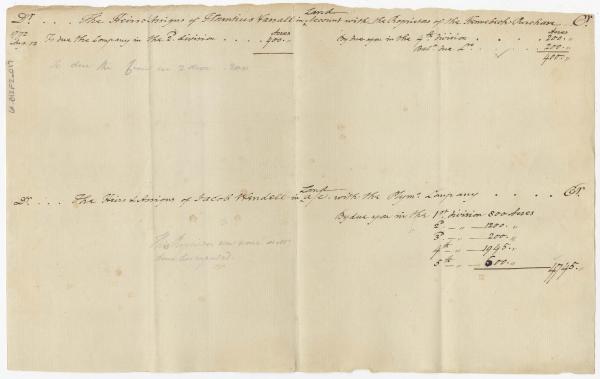 Dr. . . . The Heirs & Assigns of Florentius Vassall in Land Account with the Proprietors of the Kennebeck Purchase . . . Cr.
1772 Acres Acres
Aug. 12 To due the Company in the 2d. division . . . . 400. „ By due you in the 4th. division . . . . 200. „
Bale. due Do. . . 200. „
400. „
To due the from in 2 divn 200
Dr. . . . The Heirs & Assigns of Jacob Wendell in Land a/c. with the Plymo. Company . . . . . Cr.
By due you in the 1st division 800 Acres
2d — „ — 1200. „
3d — „ — 200. „
4th — „ — 1945. „
5th — „ — 600. „
4745. „